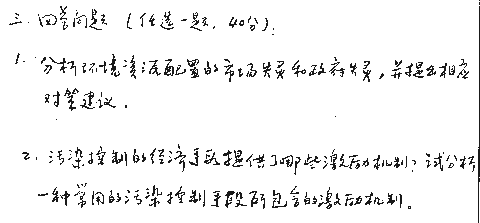 三、回答问题（任选一题，40分）：
1. 分析环境资源配置的市场失灵和政府失灵，并提出相应
对策建议。
2. 污染控制的经济手段提供了哪些激励机制？试分析
一种常用的污染控制手段所包含的激励机制。